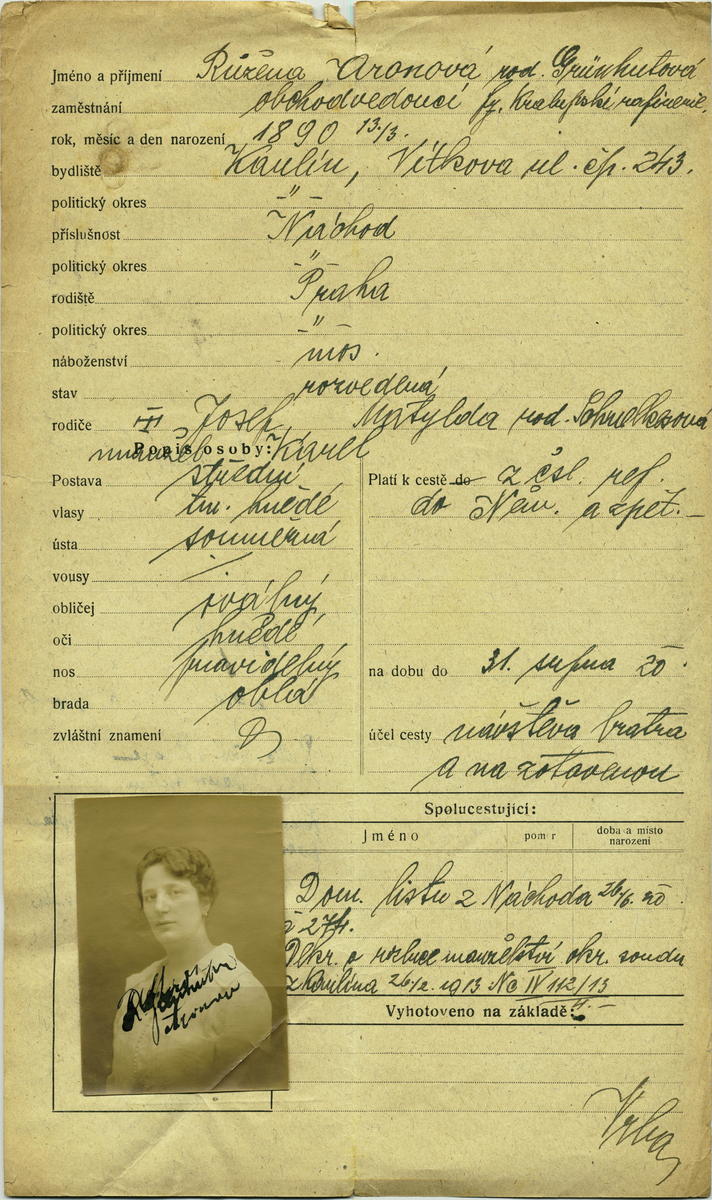 Jméno a příjmení Růžena Aronová rod. Grünhutová
zaměstnání obchodvedoucí fy. Kralupské rafinerie.
rok, měsíc a den narození 1890 13./3.
bydliště Karlín, Vítkova ul. čp. 243.
politický okres -"-
příslušnost Náchod
politický okres -"-
rodiště Praha
politický okres -"-
náboženství mos.
stav rozvedená
rodiče Josef, Matylda rod.
manžel Karel
Popis osoby:
Postava střední
vlasy tm. hnědé
ústa souměrná
vousy /
obličej oválný
oči hnědé
nos pravidelný
brada oblá
zvláštní znamení
Platí k cestě do z čsl. rep.
do Něm. a zpět.—
na dobu do 31. srpna 20.
účel cesty návštěva bratra
a na zotavenou
Spolucestující:
Jméno poměr doba a místo narození
Dom. listu z Náchoda 26/6. 20
č 274.
Dekr. o rozluce manželství okr. soudu
z Karlína 26/2. 1913 Nc IV 112/13
Vyhotoveno na základě:
Aronová
Vrba